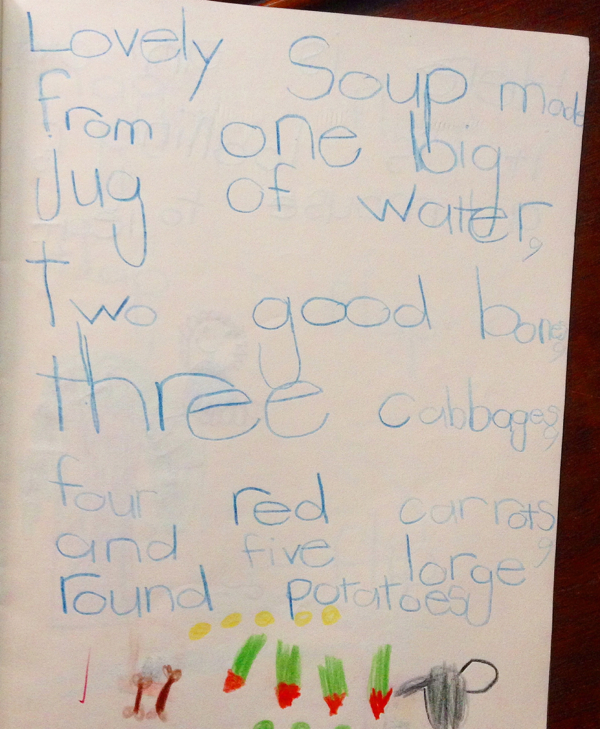 Lovely Soup made
from one big
jug of water,
Two good bones,
three cabbages,
four red carrots,
and five large
round potatoes